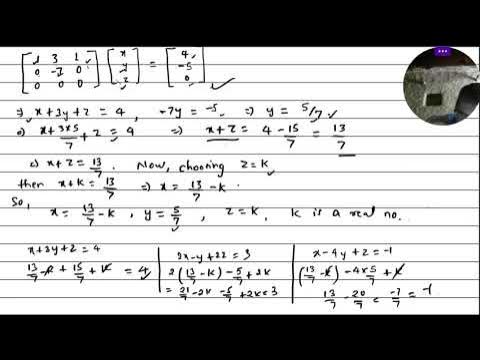 [1 3 1; 0 -7 0; 0 0 0] [x; y; z] = [4; -5; 0]
⇒ x+3y+z = 4, -7y = -5, ⇒ y = 5/7
x + 3x5/7 + z = 4 ⇒ x+z = 4 - 15/7 = 13/7
x+z = 13/7. Now, choosing z=k
then x+k = 13/7 ⇒ x = 13/7 - k.
So,
x = 13/7 - k, y = 5/7, z = k, k is a real no.
x+3y+z = 4
13/7 - k + 15/7 + k = 4
2x-y+2z = 3
2(13/7 - k) - 5/7 + 2k
= 21/7 - 2k - 5/7 + 2k = 3
x-4y+z = -1
(13/7 - k) - 4x5/7 + k
13/7 - 20/7 = -7/7 = -1